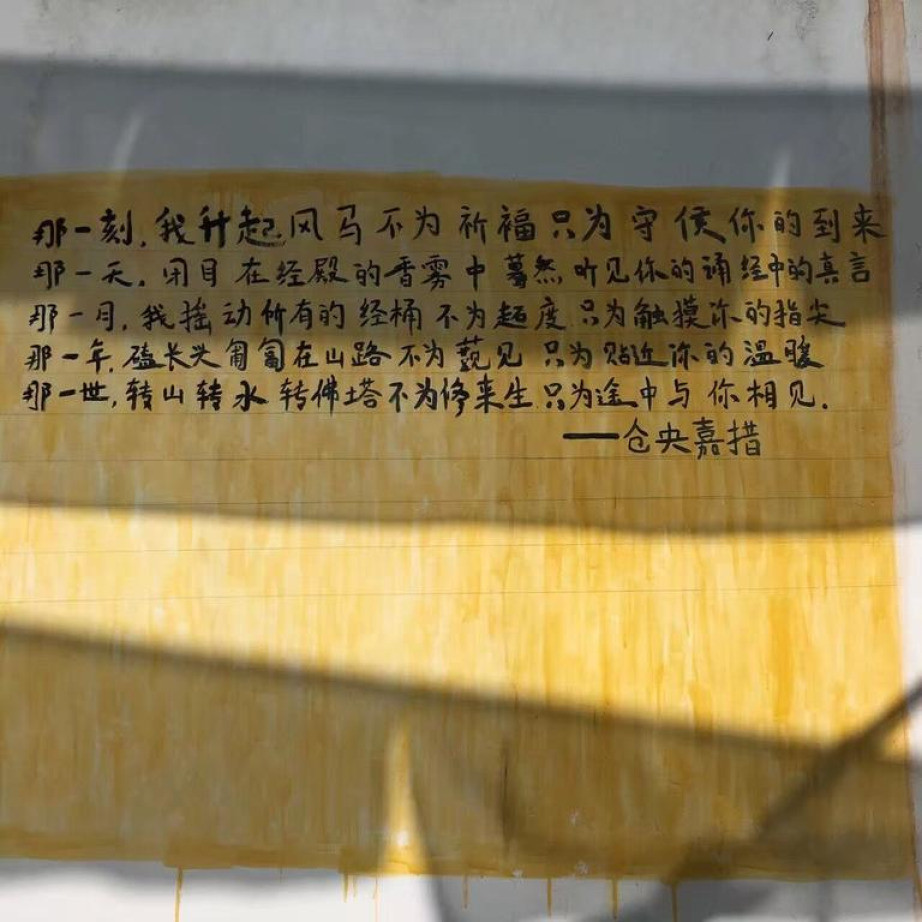 那一刻,我升起风马不为祈福只为守侯你的到来
那一天,闭目在经殿的香雾中蓦然听见你的诵经中的真言
那一月,我摇动所有的经桶不为超度只为触摸你的指尖
那一年,磕长头匍匐在山路不为觐见只为贴近你的温暖
那一世,转山转水转佛塔不为修来生只为途中与你相见.
——仓央嘉措